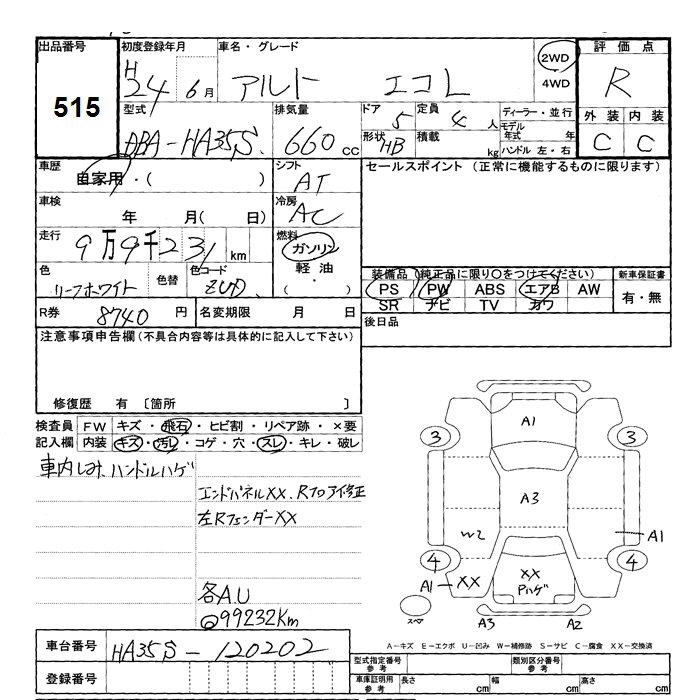 出品番号 初度登録年月 車名・グレード 2WD 4WD 評価点
515 H24 6月 アルト エコL R
型式 排気量 ドア 定員 ディーラー・並行 外装 内装
DBA-HA35S 660cc 5 4人 モデル年式 年 C C
形状 HB 積載 kg ハンドル 左・右
車歴 自家用・( ) シフト AT セールスポイント (正常に機能するものに限ります)
車検 年 月( 日) 冷房 AC
走行 9万9千231km 燃料 ガソリン 軽油 ( ・ )
色 リーフホワイト 色替 色コード ZUD
装備品 (純正品に限り○をつけてください) 新車保証書
PS PW ABS エアB AW 有・無
SR ナビ TV カワ
R券 8740円 名変期限 月 日
後日品
注意事項申告欄(不具合内容等は具体的に記入して下さい)
修復歴 有 〔箇所 〕
検査員 FW キズ・飛石・ヒビ割・リペア跡・×要
記入欄 内装 キズ・汚レ・コゲ・穴・スレ・キレ・破レ
車内しみ、ハンドルハゲ
エンドパネルXX、Rフロアイ修正
左RフェンダーXX
各A.U
@99232Km
A1
3 3
A3
W2 A1
4 4
A1 XX XX Pハゲ
スペア A3 A2
A-キズ E-エクボ U-凹み W-補修跡 S-サビ C-腐食 XX-交換済
車台番号 HA35S-120202
型式指定番号 参考 類別区分番号 参考
登録番号
車庫証明用 参考 長さ cm 幅 cm 高さ cm